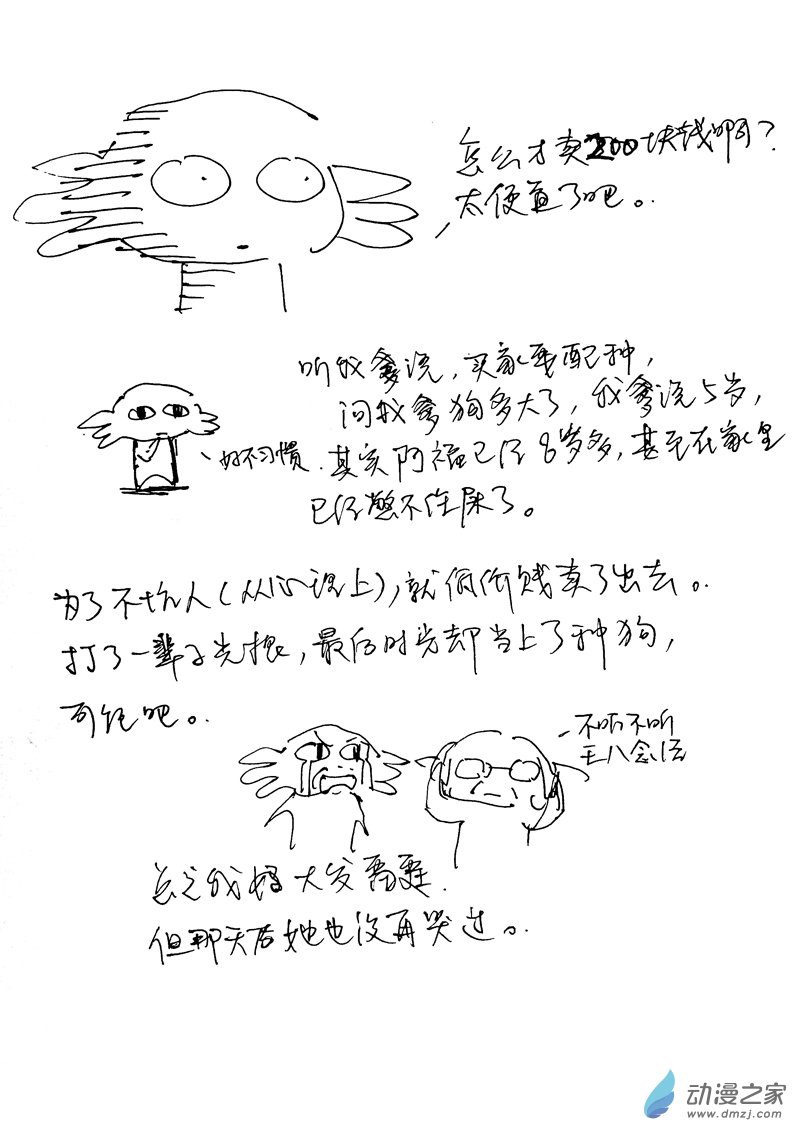 怎么才卖200块钱啊?
太便宜了吧。
听我爹说,买家要配种,
问我爹狗多大了,我爹说5岁,
好不习惯
其实阿福已经8岁多,甚至在家里
已经憋不住尿了。
为了不坑人(从心理上),就低价贱卖了出去。
打了一辈子光棍,最后时光却当上了种狗,
可能吧。
不听不听
王八念经
总之我妈大发雷霆
但那天后她也没再哭过。
动漫之家
www.dmzj.com